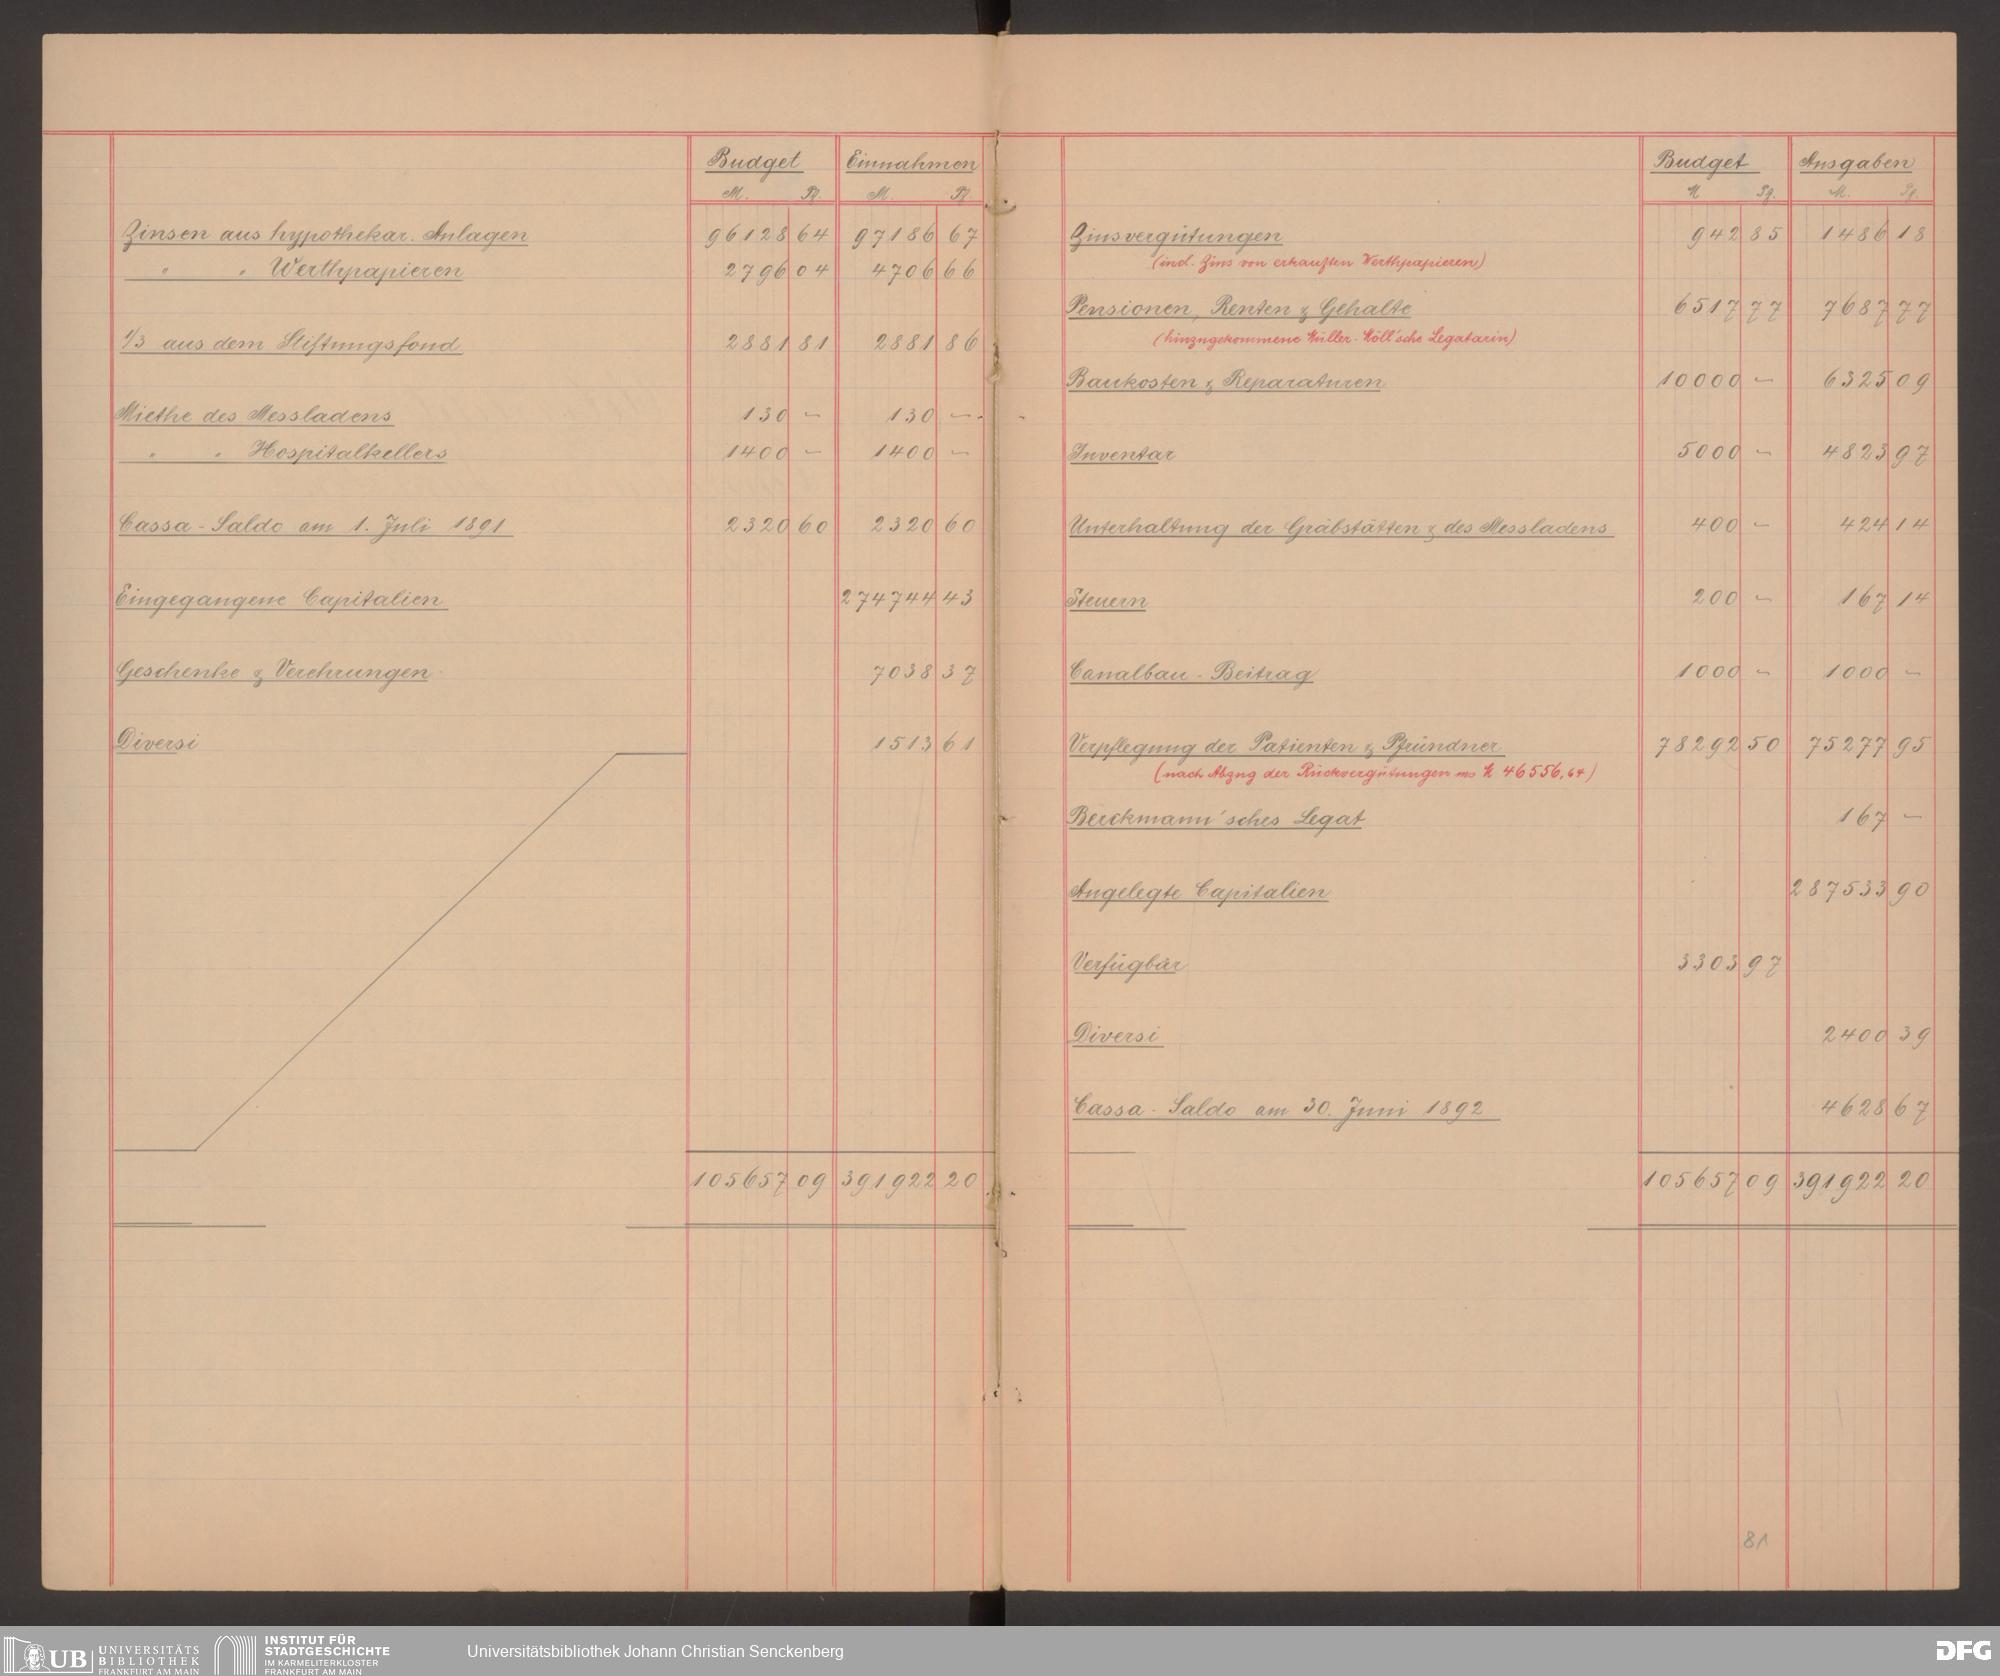 Budget Einnahmen
M. Pf. M. Pf.
Zinsen aus hypothekar. Anlagen 96128 64 97186 67
" " Werthpapieren 2796 04 4706 66
1/3 aus dem Stiftungsfond 2881 81 2881 86
Miethe des Messladens 130 — 130 —
" " Hospitalkellers 1400 — 1400 —
Cassa-Saldo am 1. Juli 1891 2320 60 2320 60
Eingegangene Capitalien 274744 43
Geschenke & Verehrungen 7038 37
Diversi 1513 61
105657 09 391922 20
Budget Ausgaben
M Pf. M. Pf.
Zinsvergütungen 942 85 1486 18
(incl. Zins von erkauften Werthpapieren)
Pensionen, Renten & Gehalte 6517 77 7687 77
(hinzugekommene Müller-Möll'sche Legatarin)
Baukosten & Reparaturen 10000 — 6325 09
Inventar 5000 — 4823 97
Unterhaltung der Grabstätten & des Messladens 400 — 424 14
Steuern 200 — 167 14
Canalbau-Beitrag 1000 — 1000 —
Verpflegung der Patienten & Pfründner 78292 50 75277 95
(nach Abzug der Rückvergütungen ms M 46556,64)
Berckmann'sches Legat 167 —
Angelegte Capitalien 287533 90
Verfügbar 3303 97
Diversi 2400 39
Cassa-Saldo am 30. Juni 1892 4628 67
105657 09 391922 20
81
UB UNIVERSITÄTS
BIBLIOTHEK
FRANKFURT AM MAIN
INSTITUT FÜR
STADTGESCHICHTE
IM KARMELITERKLOSTER
FRANKFURT AM MAIN
Universitätsbibliothek Johann Christian Senckenberg
DFG